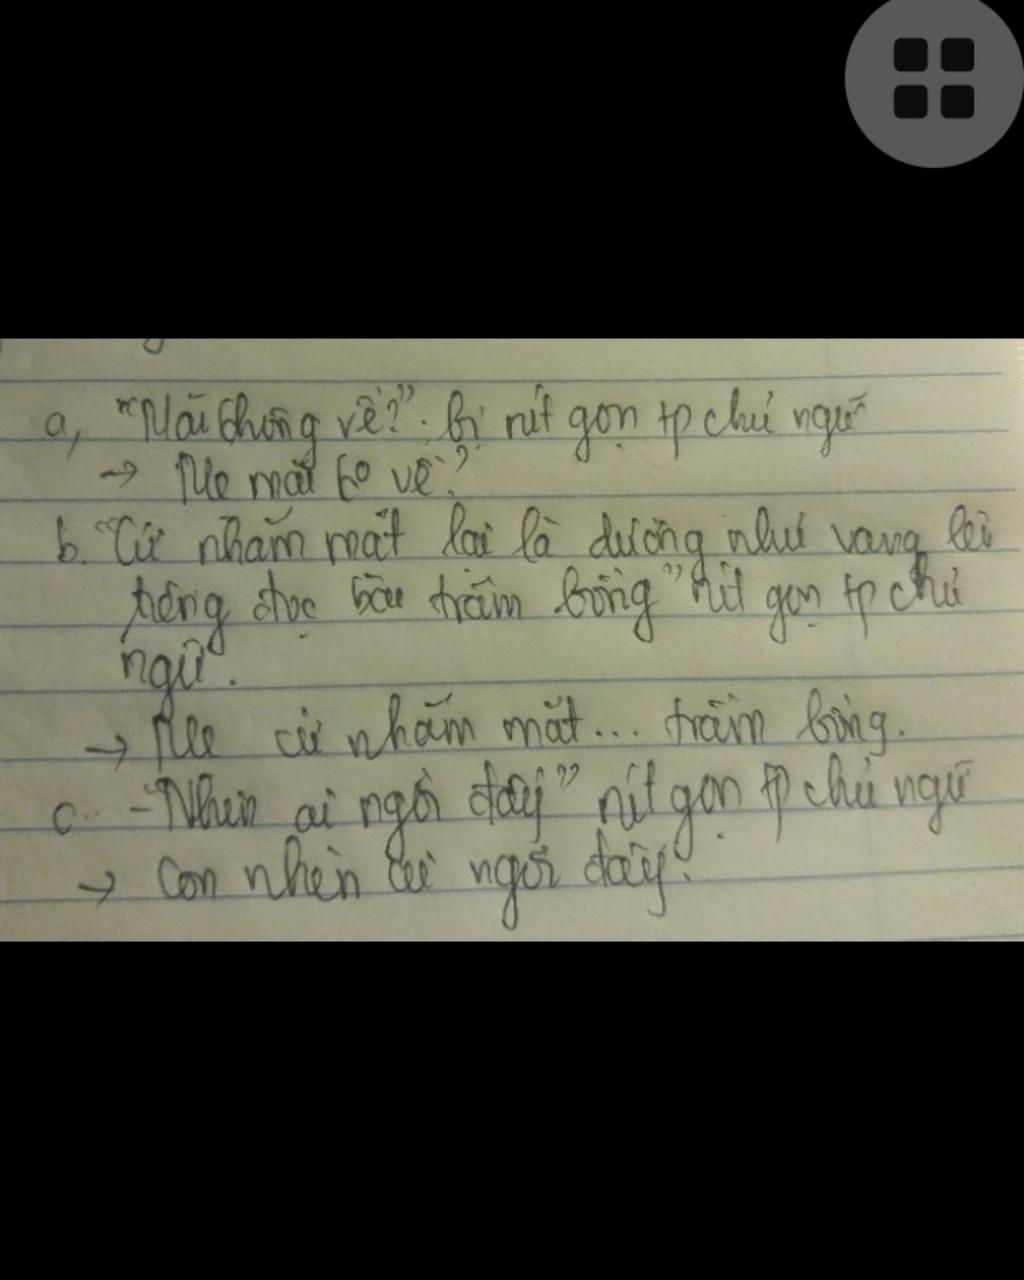 a, "Mãi không về?". bị rút gọn tp chủ ngữ
→ Mẹ mãi ko về?
b. "Cứ nhắm mắt lại là dường như vang lên
tiếng đọc bài trầm bổng" rút gọn tp chủ
ngữ.
→ Mẹ cứ nhắm mắt... trầm bổng.
c. - "Nhìn ai ngồi đây" rút gọn tp chủ ngữ
→ Con nhìn ai ngồi đây?